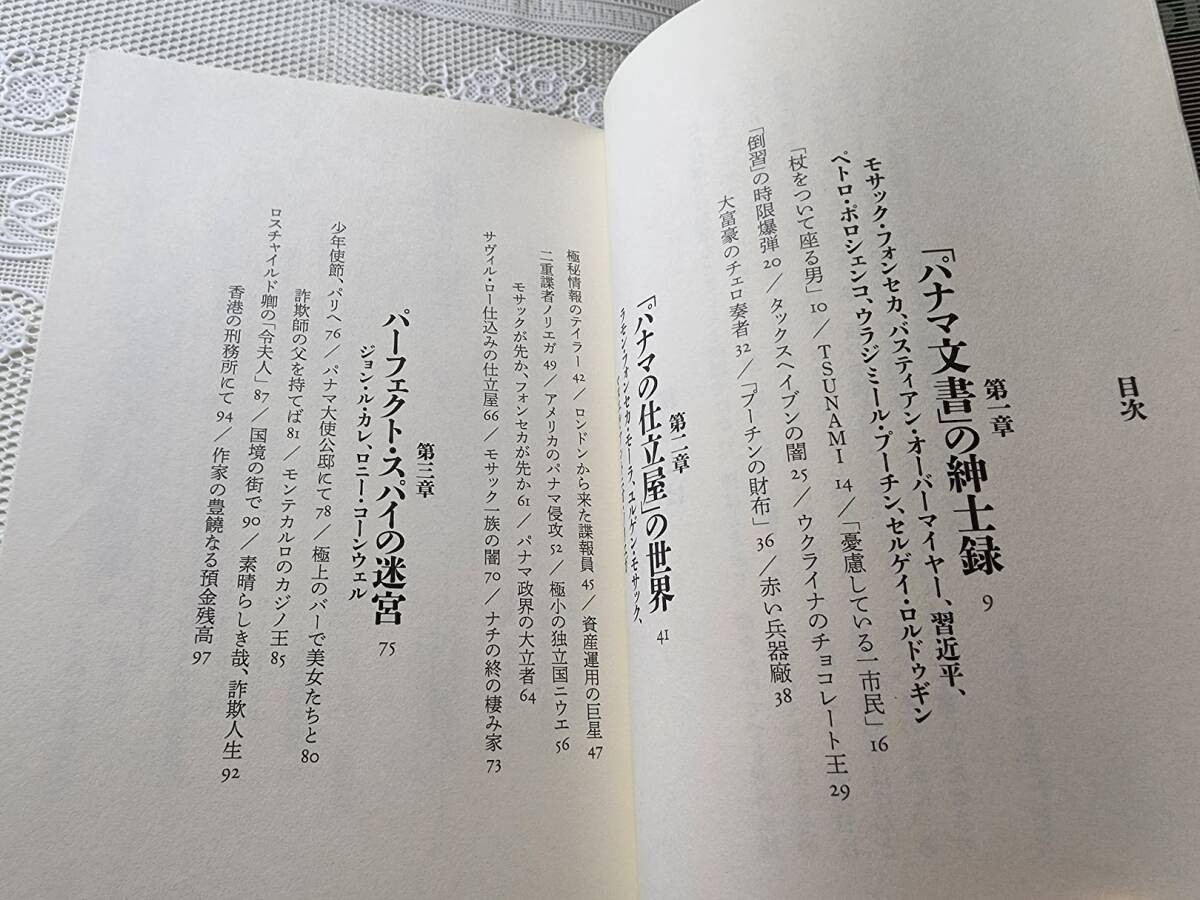 目次
第一章
「パナマ文書」の紳士録 9
モサック・フォンセカ、バスティアン・オーバーマイヤー、習近平、
ペトロ・ポロシェンコ、ウラジミール・プーチン、セルゲイ・ロルドゥギン
「杖をついて座る男」10／TSUNAMI 14／「憂慮している一市民」16
「倒習」の時限爆弾 20／タックスヘイブンの闇 25／ウクライナのチョコレート王 29
大富豪のチェロ奏者 32／「プーチンの財布」36／赤い兵器廠 38
第二章
「パナマの仕立屋」の世界 41
ラモン・フォンセカ・モーラ、ユルゲン・モサック、
極秘情報のテイラー 42／ロンドンから来た諜報員 45／資産運用の巨星 47
二重諜者ノリエガ 49／アメリカのパナマ侵攻 52／極小の独立国ニウエ 56
モサックが先か、フォンセカが先か 61／パナマ政界の大立者 64
サヴィル・ロー仕込みの仕立屋 66／モサック一族の闇 70／ナチの終の棲み家 73
第三章
パーフェクト・スパイの迷宮 75
ジョン・ル・カレ、ロニー・コーンウェル
少年使節、パリへ 76／パナマ大使公邸にて 78／極上のバーで美女たちと 80
詐欺師の父を持てば 81／モンテカルロのカジノ王 85
ロスチャイルド卿の「令夫人」87／国境の街で 90／素晴らしき哉、詐欺人生 92
香港の刑務所にて 94／作家の豊饒なる預金残高 97